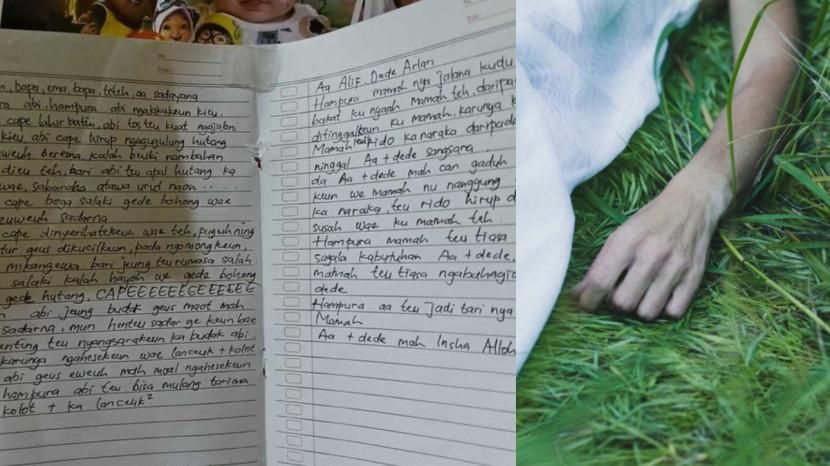 , bapa, ema, bapa, teteh, aa sadayang
abi, hampura abi ngalakukeun kieu.
cape lahir batin, abi tos teu kuat ngajalan
kieu abi cape hirup ngagugulung hutang
euweuh berena, kalah beuki nambahan
dieu teh, bari abi teu apal hutang ka
wae, sabaraha atawa urud naon .....
cape boga salaki gede bohong wae
euweuh sadarna
cape dinyerihatekeun wae teh, puguh ning
tur geus dikucilkeun, pada ngomongkeun,
mikangewa bari jeung teu rumasa salah.
salaki kalah hayoh we gede bohong
gede hutang, CAPEEEEEEEEEEEEE
abi jeung budak geus maot mah
sadarna, mun henteu sadar ge keun bae
enting teu nyangsarakeun ka budak abi.
karunga ngahesekeun wae lanceuk + kolot
abi geus euweuh mah moal ngahesekeun
hampura abi teu bisa mulang tarima
kolot + ka lanceuk²
Aa Alif, Dede Arlan
Hampura mamah nya jalana kudu
babat ku ngaah Mamah teh, daripa
ditinggalkeun ku mamah, karunya k
Mamah rido ka naraka daripada
ninggal Aa + dede sangsara
da Aa + dede mah can gaduh
keun we mamah nu nanggung
ka naraka, teu rido hirup d
susah wae ku mamah teh.
Hampura mamah teu tiasa
sagala kabutuhan Aa + dede,
mamah teu tiasa ngabahagi
dede
Hampura aa teu jadi tari nya
Mamah
Aa + dede mah Insha Alloh